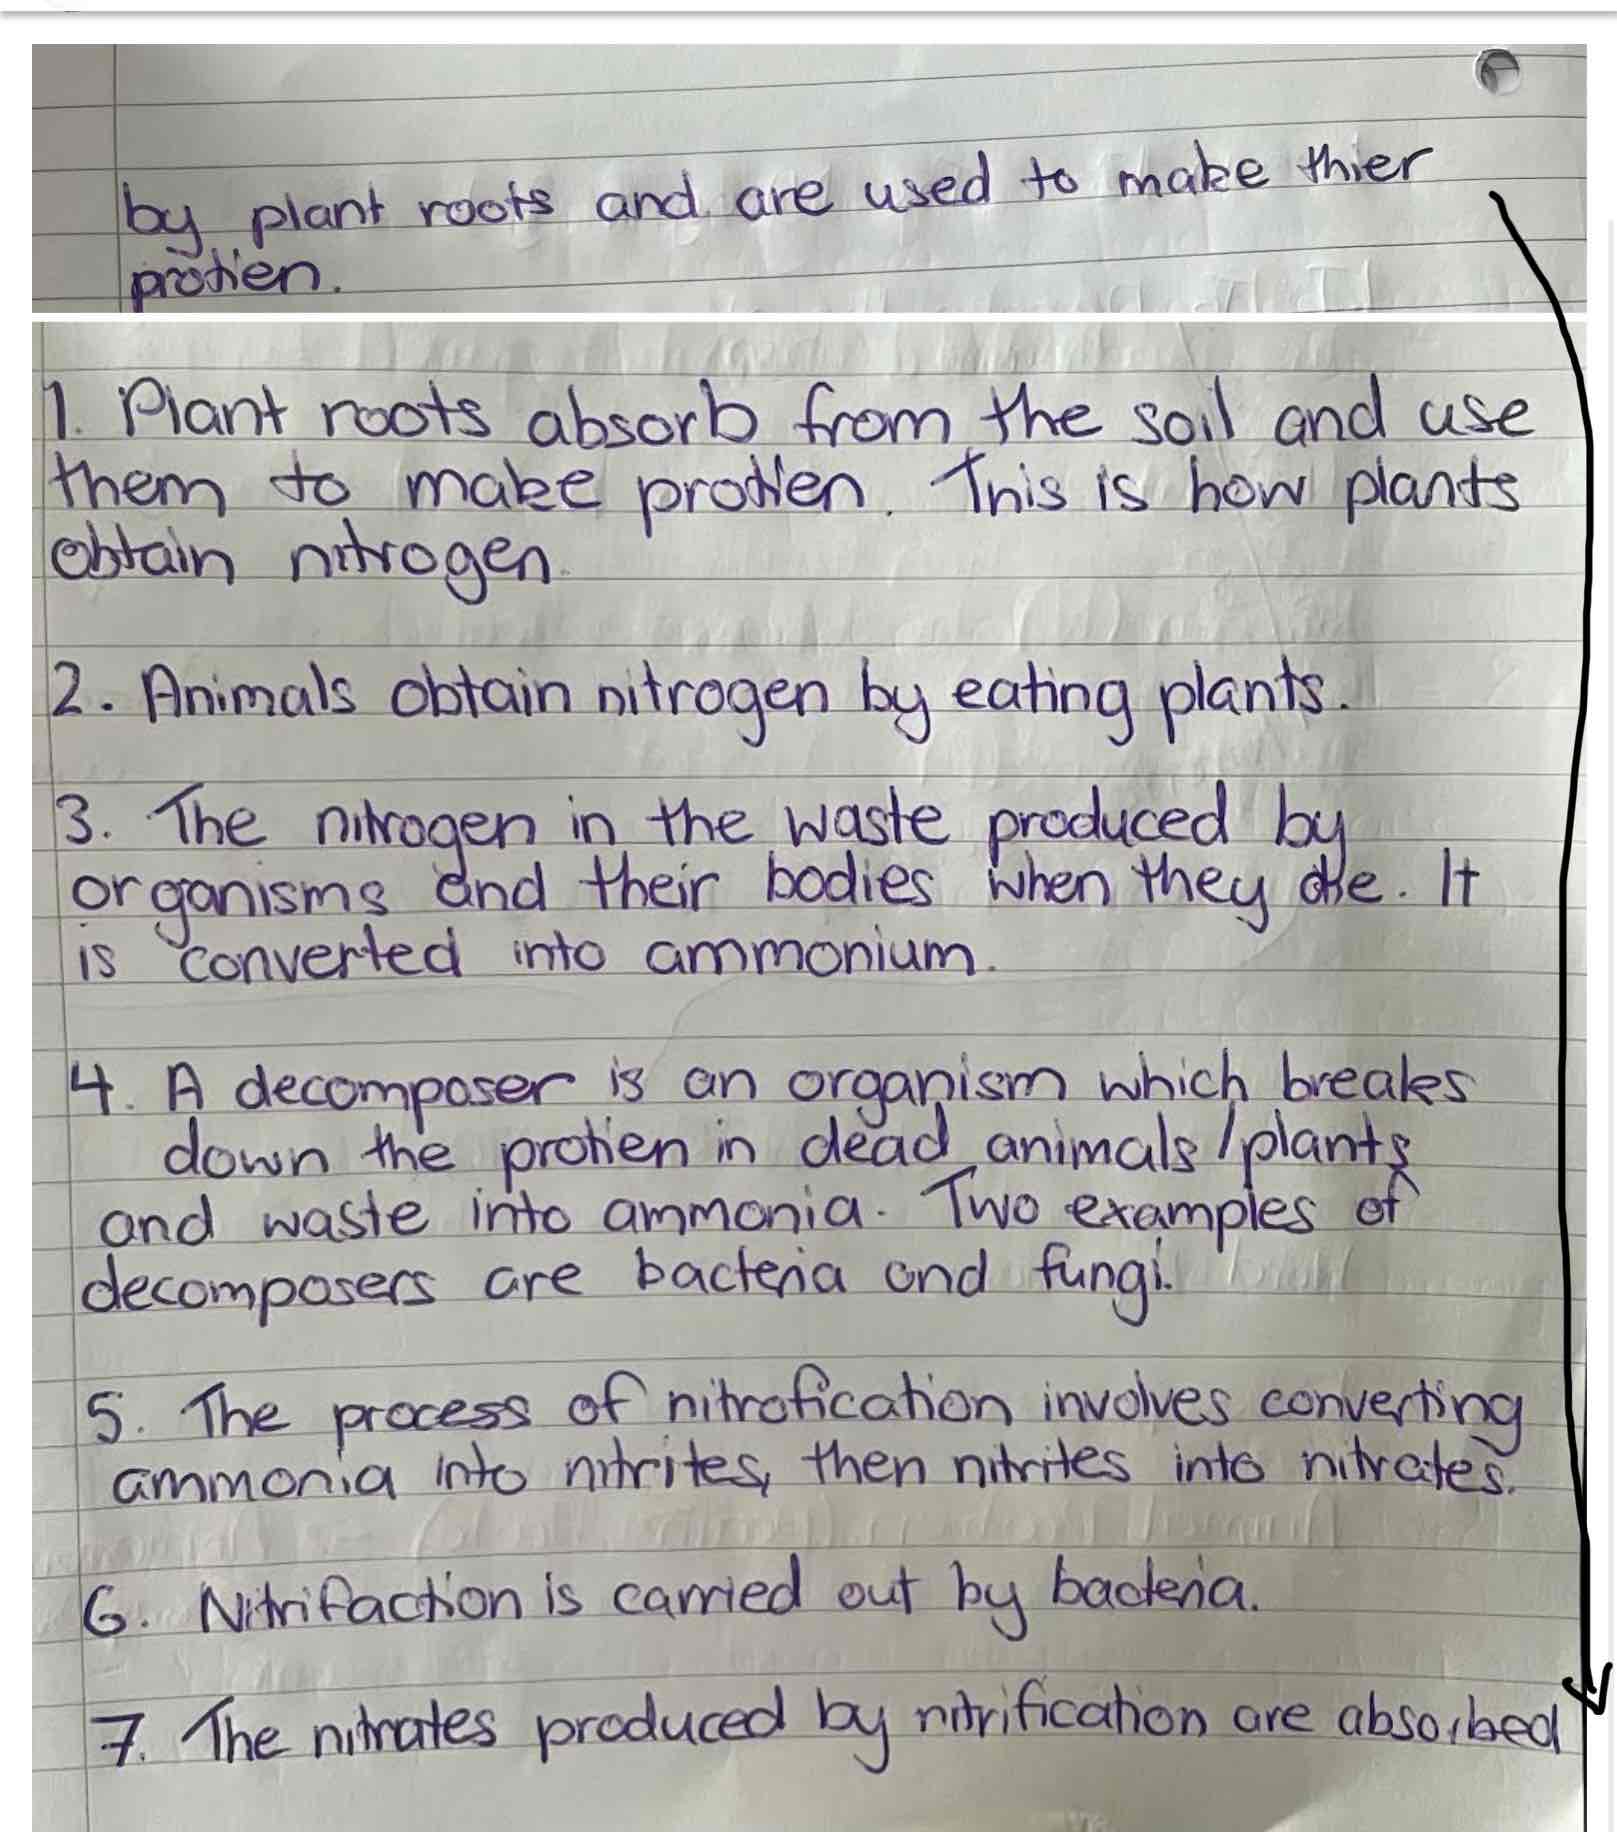 by plant roots and are used to make thier
protien.
1. Plant roots absorb from the soil and use
them to make protien. This is how plants
obtain nitrogen.
2. Animals obtain nitrogen by eating plants.
3. The nitrogen in the waste produced by
organisms and their bodies when they die. It
is converted into ammonium.
4. A decomposer is an organism which breaks
down the protien in dead animals/plants
and waste into ammonia. Two examples of
decomposers are bacteria and fungi.
5. The process of nitrofication involves converting
ammonia into nitrites, then nitrites into nitrates.
6. Nitrifaction is carried out by bacteria.
7. The nitrates produced by nitrification are absorbed